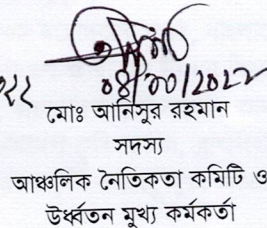 ০৪/১০/২০২২
মোঃ আনিসুর রহমান
সদস্য
আঞ্চলিক নৈতিকতা কমিটি ও
উর্ধ্বতন মুখ্য কর্মকর্তা